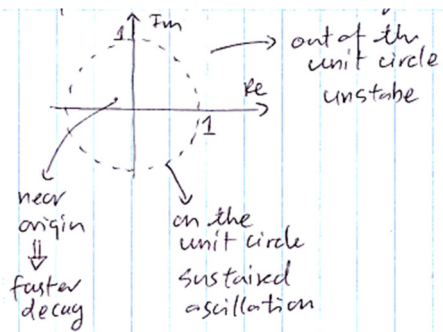 1 Im
out of the
unit circle
unstabe
Re
1
near
origin
⇓
faster
decay
on the
unit circle
sustaired
ascillation